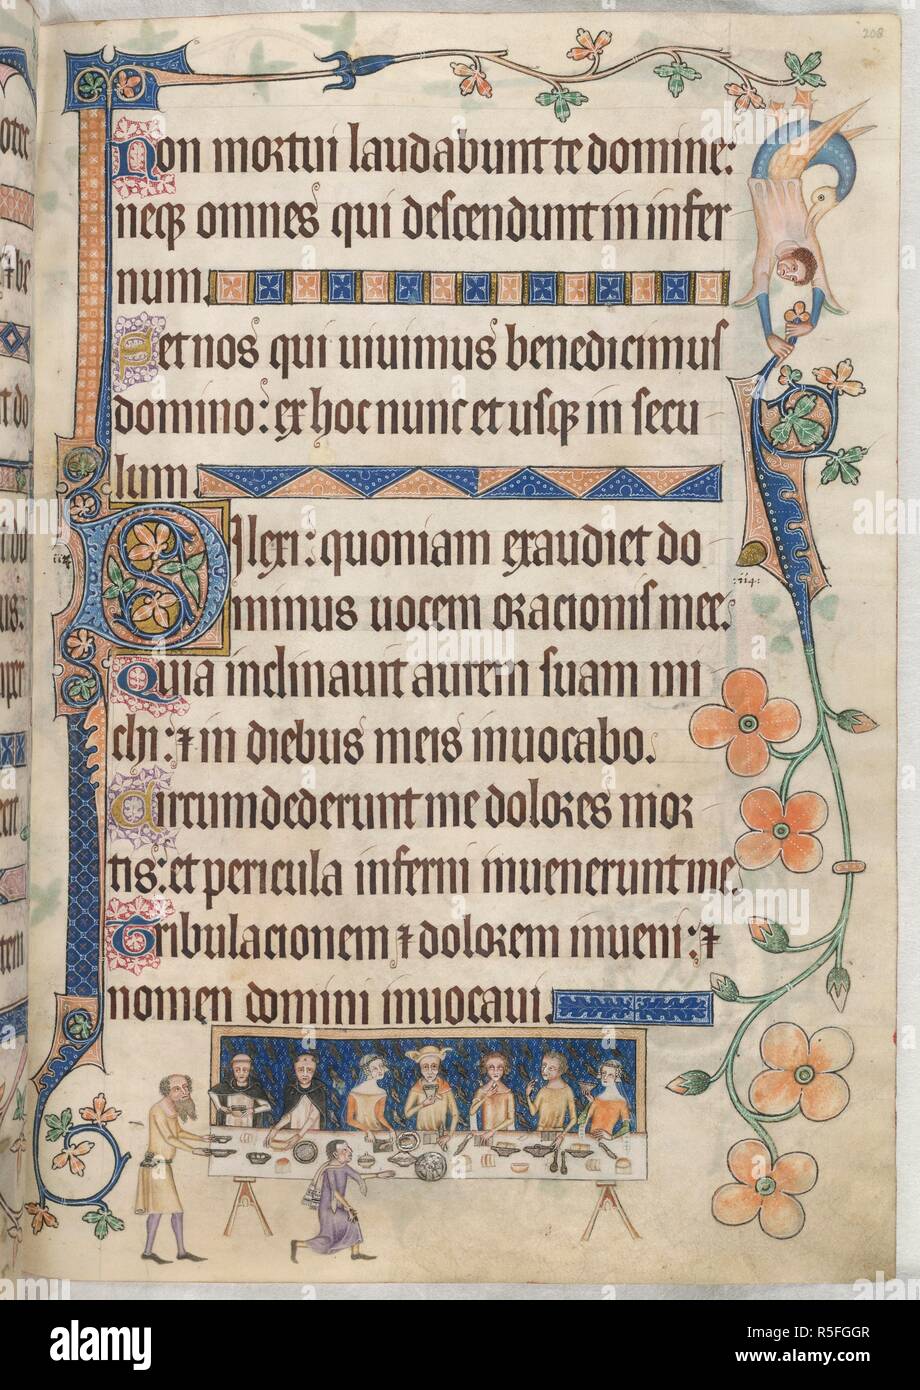 208
Non mortui laudabunt te domine:
neqꝫ omnes qui descendunt in infer
num.
Set nos qui uiuimus benedicimus
domino: ex hoc nunc et usqꝫ in secu
lum.
Dilexi: quoniam exaudiet do
minus uocem orationis mee.
Quia inclinauit aurem suam mi
chi: ⁊ in diebus meis inuocabo.
Circumdederunt me dolores mor
tis: et pericula inferni inuenerunt me.
Tribulacionem ⁊ dolorem inueni: ⁊
nomen domini inuocaui.
:114:
alamy
Image ID: R5FGGR
www.alamy.com